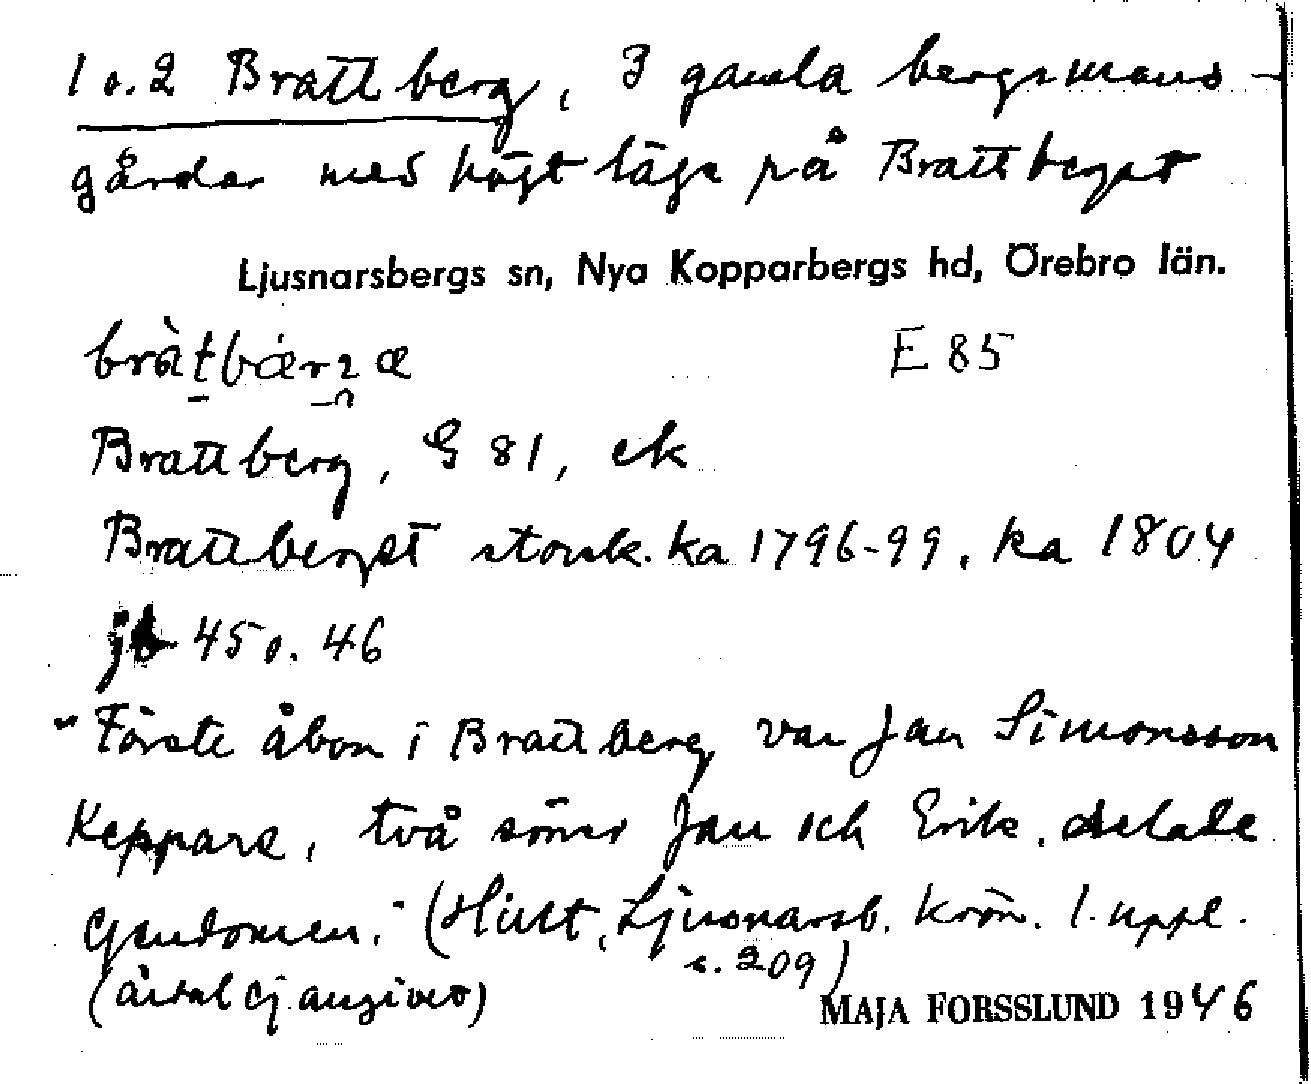 1 o. 2 Brattberg, 3 gamla bergsmans-
gårdar med högt läge på Brattberget
Ljusnarsbergs sn, Nya Kopparbergs hd, Örebro län.
E 85
Brattberg, G 81, ek
Brattberget storsk. ka 1796-99, ka 1804
jb 45 o. 46
"Förste åbon i Brattberg var Jan Simonsson
Keppare, två söner Jan och Erik, delade
egendomen." (Hult, Ljusnarsb. krön. 1. uppl.
s. 209)
(årtal ej angivet)
MAJA FORSSLUND 1946